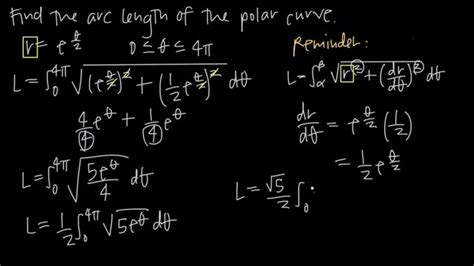 Find the arc length of the polar curve.
r = e^{θ/2}   0 ≤ θ ≤ 4π
L = ∫_0^{4π} √((e^{θ/2})^2 + (1/2 e^{θ/2})^2) dθ
4/4 e^θ + 1/4 e^θ
L = ∫_0^{4π} √(5e^θ/4) dθ
L = 1/2 ∫_0^{4π} √(5e^θ) dθ
Reminder:
L = ∫_α^β √(r^2 + (dr/dθ)^2) dθ
dr/dθ = e^{θ/2} (1/2)
= 1/2 e^{θ/2}
L = √5/2 ∫_0